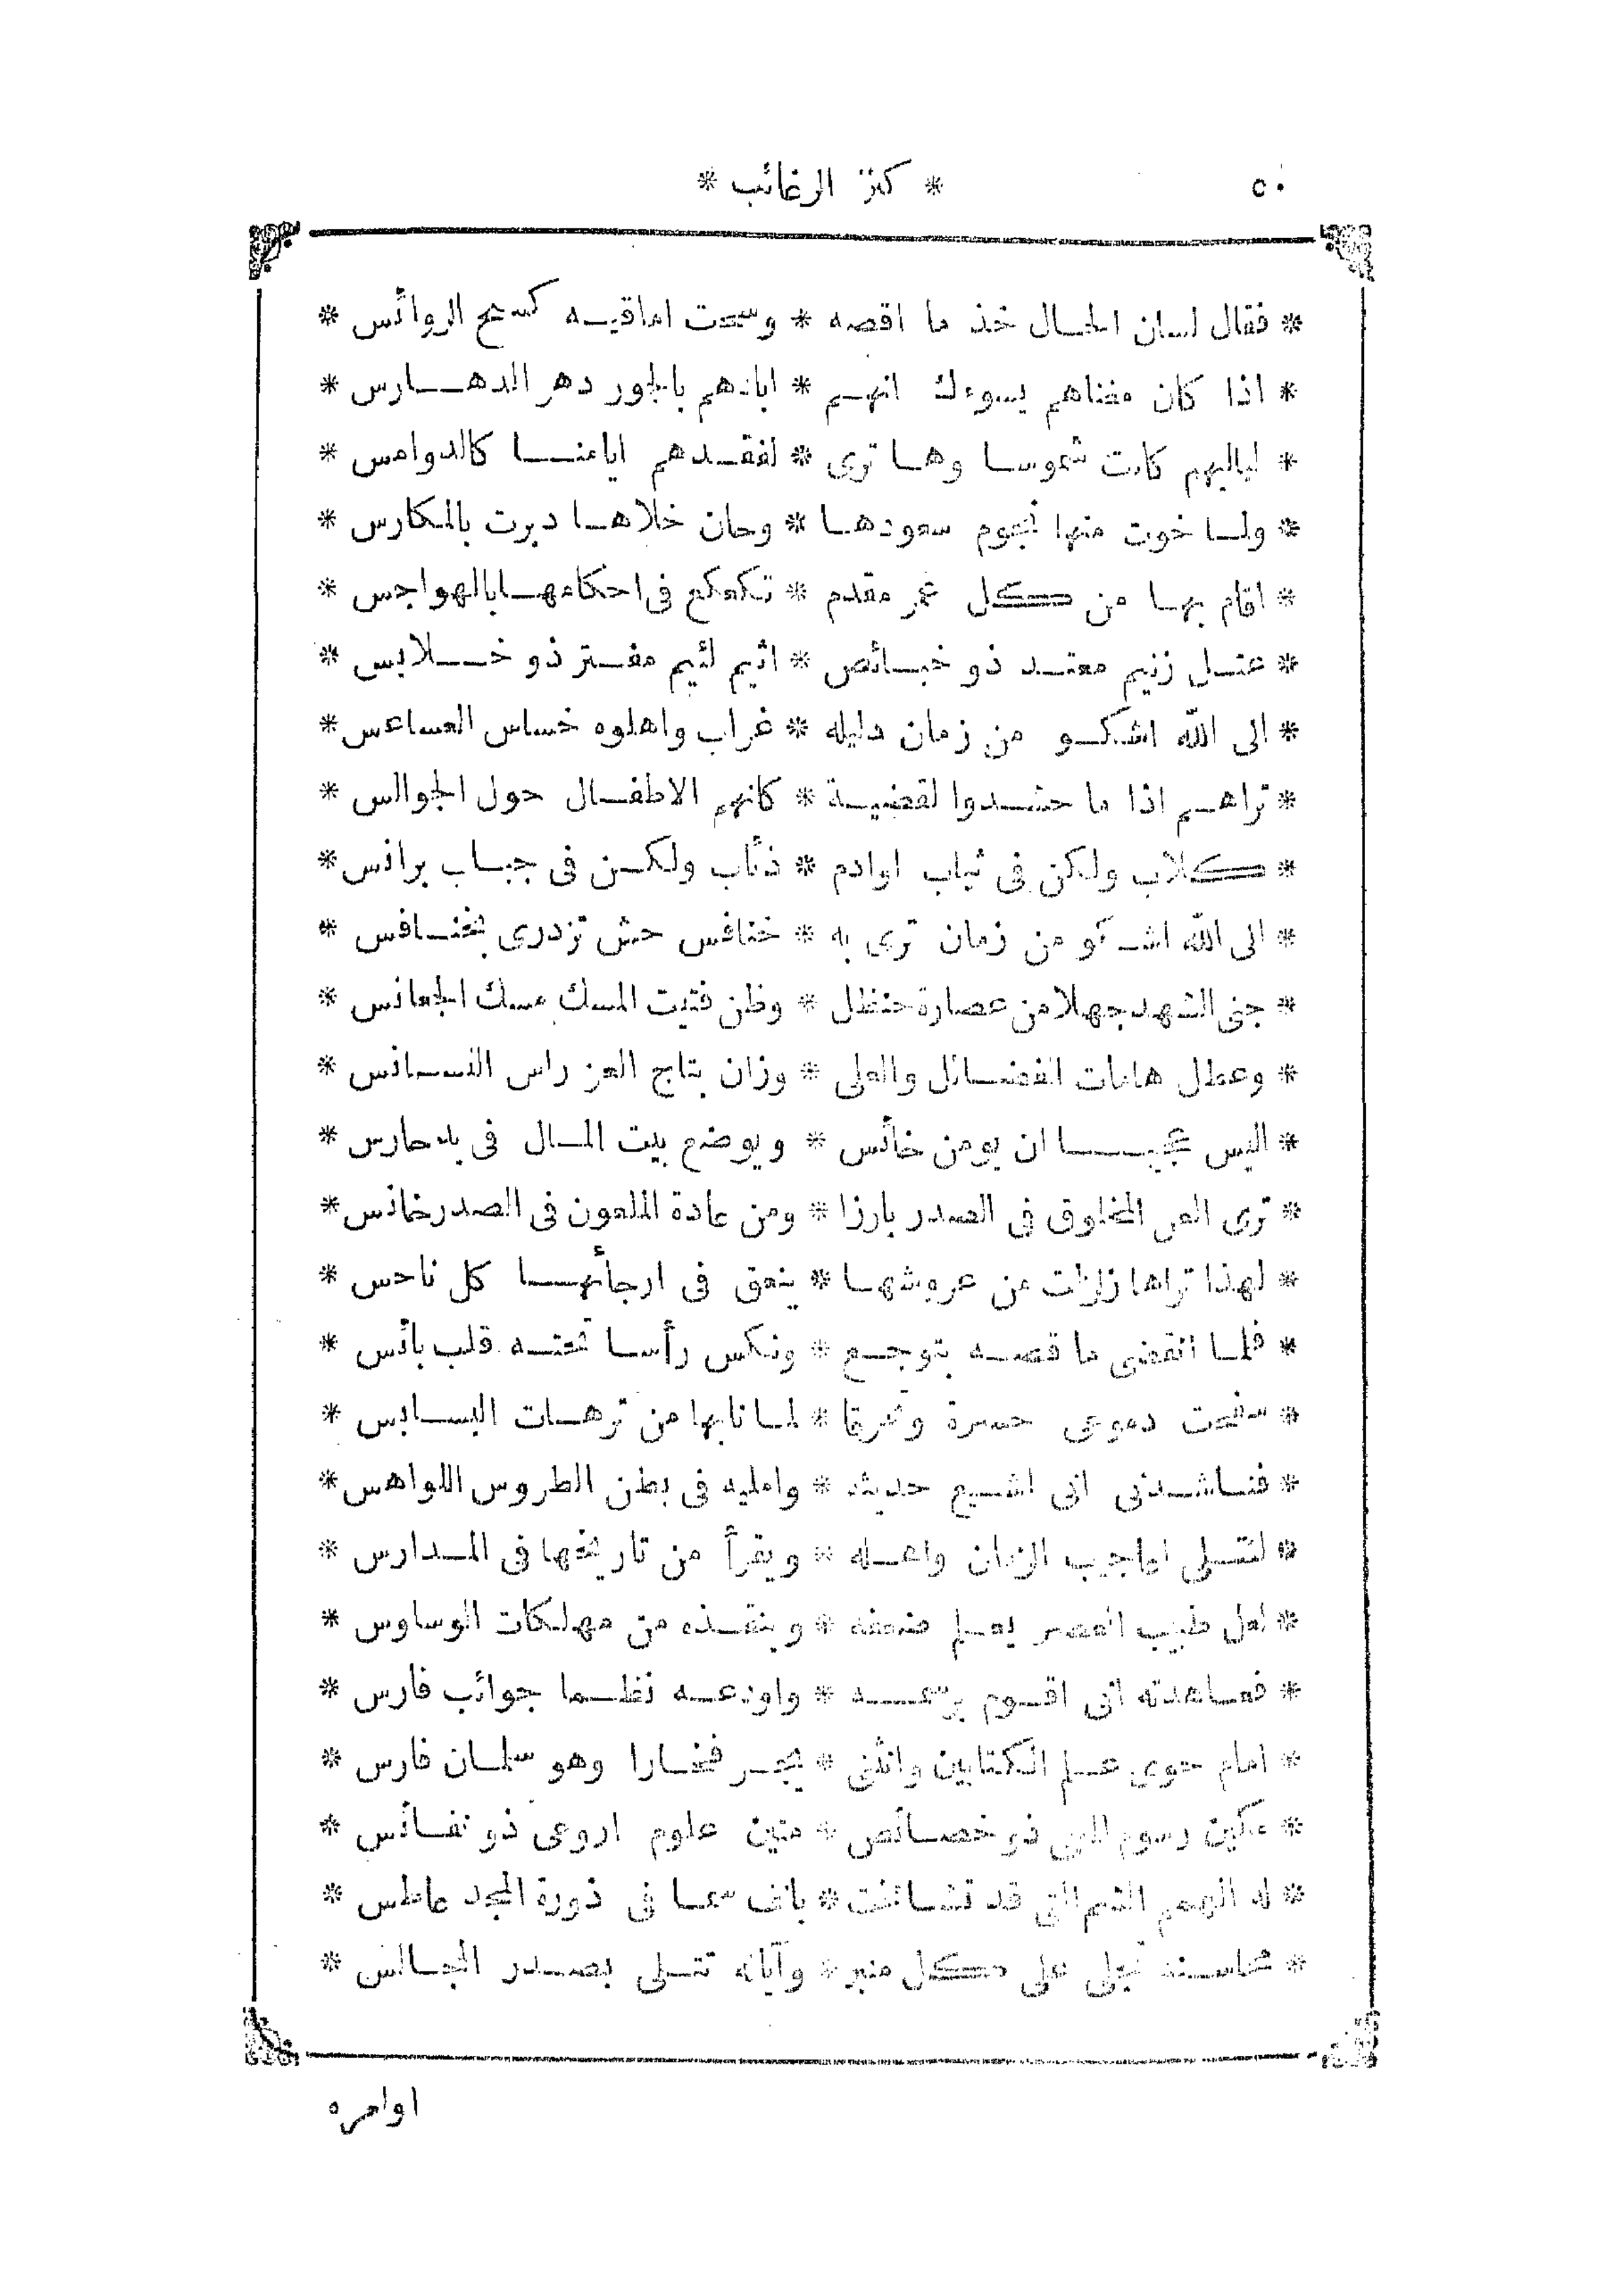 ٥٠ * كنز الرغائب *
* فقال لسان الحال خذ ما اقصه * وسحت اماقيه كسح الروائس *
* اذا كان مغناهم يسوءك انهم * ابادهم بالجور دهر الدهارس *
* لياليهم كانت شموسا وها ترى * لفقدهم ايامنا كالدوامس *
* ولما خوت منها نجوم سعودها * وحان خلاها دبرت بالمكارس *
* اقام بها من كل غمر مقدم * تكعكع فى احكامها بالهواجس *
* عتل زنيم معتد ذو خبائص * اثيم لئيم مفتر ذو خلابس *
* الى الله اشكو من زمان دليله * غراب واهلوه خساس العساعس *
* تراهم اذا ما حشدوا لقضية * كانهم الاطفال حول الجوالس *
* كلاب ولكن فى ثياب اوادم * ذئاب ولكن فى جباب برانس *
* الى الله اشكو من زمان ترى به * خنافس حش تزدرى بخنافس *
* جنى الشهد جهلا من عصارة حنظل * وظن فتيت المسك مسك الجعانس *
* وعطل هامات الفضائل والعلى * وزان بتاج العز راس النسانس *
* اليس عجيبا ان يومن خائس * ويوضع بيت المال فى يد حارس *
* ترى المخلوق فى الصدر بارزا * ومن عادة الملعون فى الصدر خانس *
* لهذا تراها زلزلت من عروشها * ينعق فى ارجائها كل ناحس *
* فلما انقضى ما قصه بتوجع * ونكس رأسا تحته قلب بائس *
* سفحت دموعى حسرة وتحرقا * لما نابها من ترهات البسابس *
* فناشدنى انى اشيع حديثه * وامليه فى بطن الطروس اللواهس *
* لتتلى اعاجيب الزمان واهله * ويقرأ من تاريخها فى المدارس *
* لعل طبيب العصر يعلم ضعفه * وينقذه من مهلكات الوساوس *
* فعاهدته انى اقوم بزعمه * واودعه نظما جوائب فارس *
* امام حوى علم الكتابين وانثنى * يجر فخارا وهو سلمان فارس *
* مكين رسوم الدين ذو خصائص * متين علوم اروعى ذو نفائس *
* له الهمم الشم التى قد تشامخت * بانف سما فى ذورة المجد عاطس *
* محاسنه تجلى على كل منبر * وآياته تتلى بصدر المجالس *
اوامره